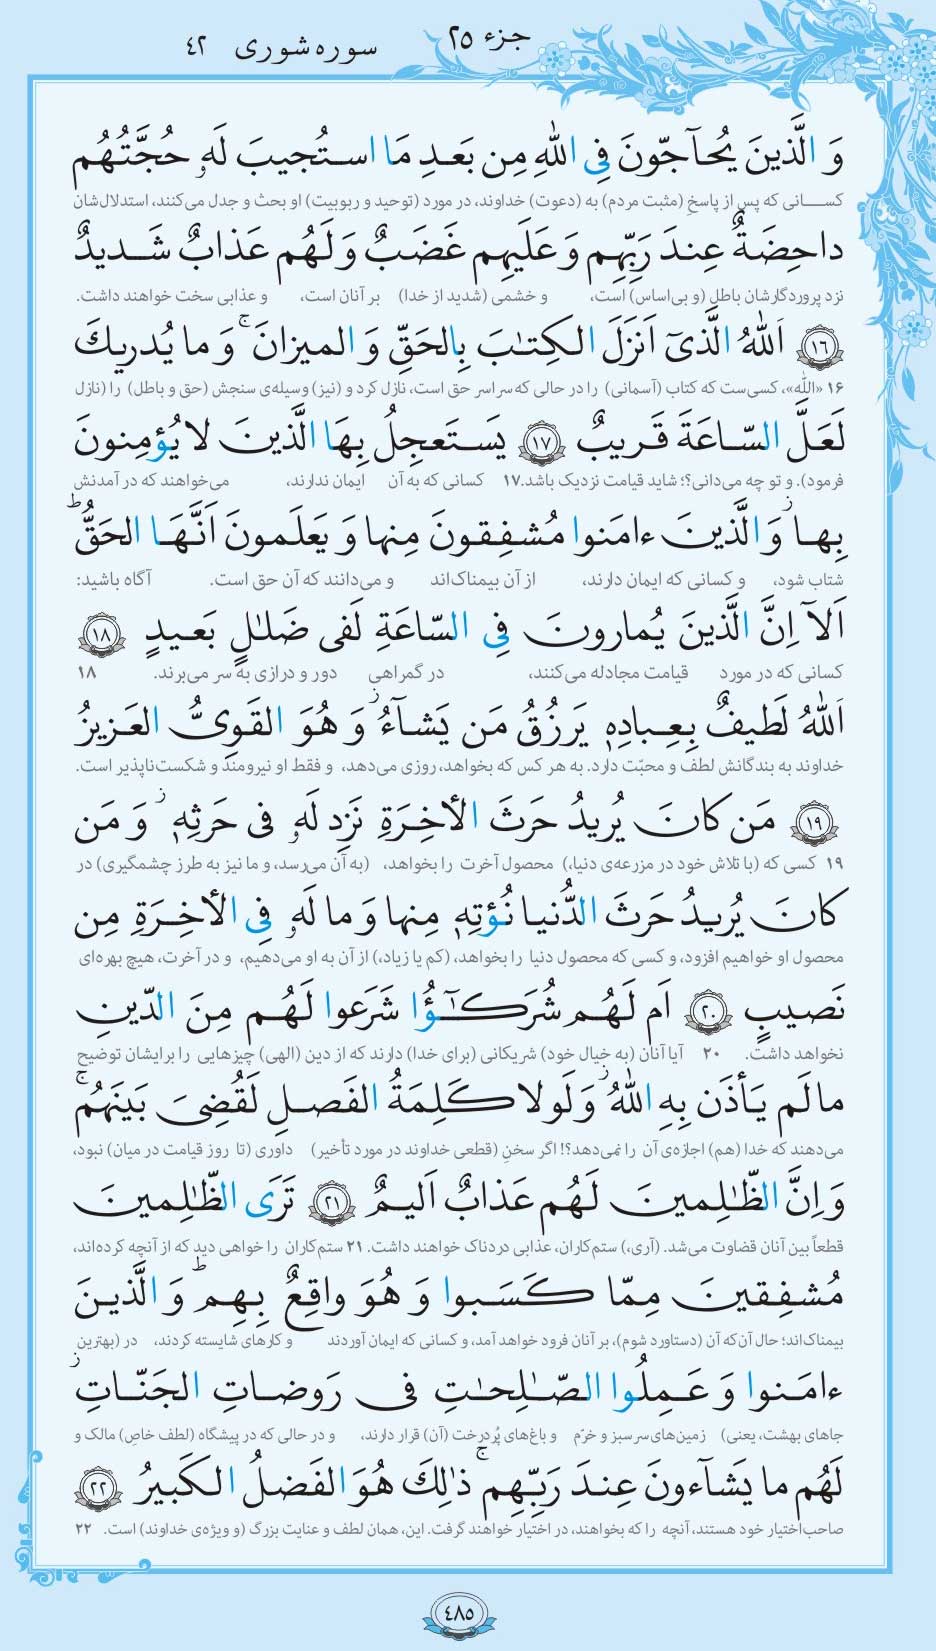 جزء ۲۵ سوره شوری ۴۲
وَ الَّذینَ یُحآجّونَ فِی اللهِ مِن بَعدِ مَا استُجیبَ لَهٗ حُجَّتُهُم
کسانی که پس از پاسخِ (مثبت مردم) به (دعوت) خداوند، در مورد (توحید و ربوبیت) او بحث و جدل می‌کنند، استدلال‌شان
داحِضَةٌ عِندَ رَبِّهِم وَ عَلَیهِم غَضَبٌ وَ لَهُم عَذابٌ شَدیدٌ
نزد پروردگارشان باطل (و بی‌اساس) است، و خشمی (شدید از خدا) بر آنان است، و عذابی سخت خواهند داشت.
﴿۱۶﴾ اَللهُ الَّذیٓ اَنزَلَ الکِتٰبَ بِالحَقِّ وَ المیزانَ ۚ وَ ما یُدریكَ
۱۶ «الله»، کسی‌ست که کتاب (آسمانی) را در حالی که سراسر حق است، نازل کرد و (نیز) وسیله‌ی سنجش (حق و باطل) را (نازل
لَعَلَّ السّاعَةَ قَریبٌ ﴿۱۷﴾ یَستَعجِلُ بِهَا الَّذینَ لا یُؤمِنونَ
فرمود). و تو چه می‌دانی؟؛ شاید قیامت نزدیک باشد.۱۷ کسانی که به آن ایمان ندارند، می‌خواهند که در آمدنش
بِها ۖ وَ الَّذینَ ءامَنوا مُشفِقونَ مِنها وَ یَعلَمونَ اَنَّهَا الحَقُّ ؕ
شتاب شود، و کسانی که ایمان دارند، از آن بیمناک‌اند و می‌دانند که آن حق است. آگاه باشید:
اَلآ اِنَّ الَّذینَ یُمارونَ فِی السّاعَةِ لَفی ضَلٰلٍ بَعیدٍ ﴿۱۸﴾
کسانی که در مورد قیامت مجادله می‌کنند، در گمراهی دور و درازی به سر می‌برند. ۱۸
اَللهُ لَطیفٌ بِعِبادِهٖ یَرزُقُ مَن یَشآءُ ۖ وَ هُوَ القَوِیُّ العَزیزُ
خداوند به بندگانش لطف و محبّت دارد. به هر کس که بخواهد، روزی می‌دهد، و فقط او نیرومند و شکست‌ناپذیر است.
﴿۱۹﴾ مَن کانَ یُریدُ حَرثَ الأخِرَةِ نَزِد لَهٗ فی حَرثِهٖ ۖ وَ مَن
۱۹ کسی که (با تلاش خود در مزرعه‌ی دنیا،) محصول آخرت را بخواهد، (به آن می‌رسد، و ما نیز به طرز چشمگیری) در
کانَ یُریدُ حَرثَ الدُّنیا نُؤتِهٖ مِنها وَ ما لَهٗ فِی الأخِرَةِ مِن
محصول او خواهیم افزود، و کسی که محصول دنیا را بخواهد، (کم یا زیاد،) از آن به او می‌دهیم، و در آخرت، هیچ بهره‌ای
نَصیبٍ ﴿۲۰﴾ اَم لَهُم شُرَکـٰٓؤُا شَرَعوا لَهُم مِنَ الدّینِ
نخواهد داشت. ۲۰ آیا آنان (به خیال خود) شریکانی (برای خدا) دارند که از دین (الهی) چیزهایی را برایشان توضیح
ما لَم یَأذَن بِهِ اللهُ ۖ وَ لَولا کَلِمَةُ الفَصلِ لَقُضِیَ بَینَهُم ۚ
می‌دهند که خدا (هم) اجازه‌ی آن را نمی‌دهد؟! اگر سخنِ (قطعی خداوند در مورد تأخیر) داوری (تا روز قیامت در میان) نبود،
وَ اِنَّ الظّٰلِمینَ لَهُم عَذابٌ اَلیمٌ ﴿۲۱﴾ تَرَی الظّٰلِمینَ
قطعاً بین آنان قضاوت می‌شد. (آری،) ستم‌کاران، عذابی دردناک خواهند داشت. ۲۱ ستم‌کاران را خواهی دید که از آنچه کرده‌اند،
مُشفِقینَ مِمّا کَسَبوا وَ هُوَ واقِعٌ بِهِم ؕ وَ الَّذینَ
بیمناک‌اند؛ حال آن‌که آن (دستاورد شوم)، بر آنان فرود خواهد آمد، و کسانی که ایمان آوردند و کارهای شایسته کردند، در (بهترین
ءامَنوا وَ عَمِلُوا الصّٰلِحٰتِ فی رَوضاتِ الجَنّاتِ ۖ
جاهای بهشت، یعنی) زمین‌های سرسبز و خرّم و باغ‌های پُردرخت (آن) قرار دارند، و در حالی که در پیشگاه (لطف خاصِ) مالک و
لَهُم ما یَشآءونَ عِندَ رَبِّهِم ۚ ذٰلِكَ هُوَ الفَضلُ الکَبیرُ ﴿۲۲﴾
صاحب‌اختیار خود هستند، آنچه را که بخواهند، در اختیار خواهند گرفت. این، همان لطف و عنایت بزرگ (و ویژه‌ی خداوند) است. ۲۲
۴۸۵